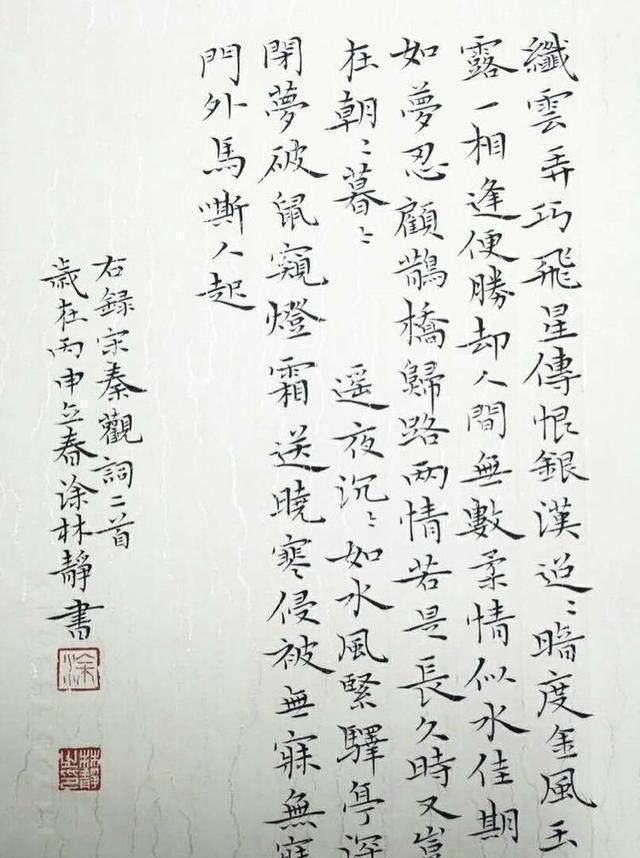 纖雲弄巧飛星傳恨銀漢迢〻暗度金風玉
露一相逢便勝却人間無數柔情似水佳期
如夢忍顧鵲橋歸路兩情若是長久時又豈
在朝〻暮〻 遥夜沉〻如水風緊驛亭深
閉夢破鼠窺燈霜送曉寒侵被無寐無寐
門外馬嘶人起
右録宋秦觀詞二首
歲在丙申立春涂林靜書
涂
林靜之印